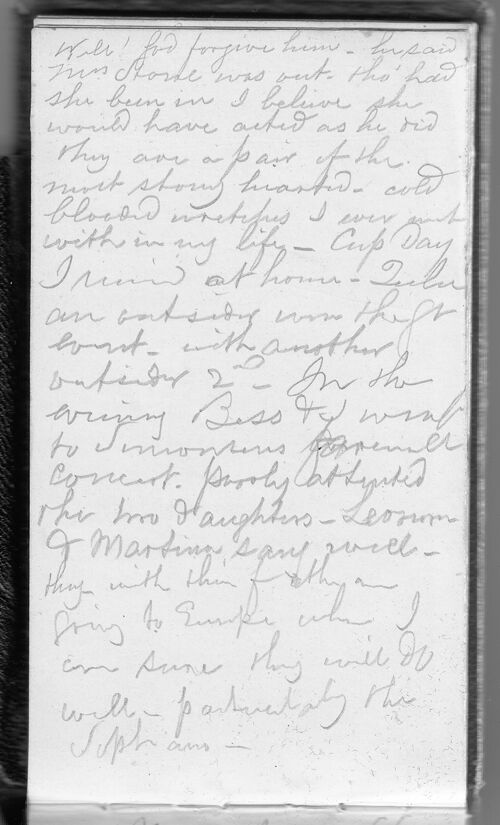 Well! God forgive him - he said
Mrs Stone was out - tho' had
she been in I believe she
would have acted as he did
they are a pair of the
most stony hearted - cold
blooded wretches I ever met
with in my life - Cup Day
I remd at home - Zulu
an outsider won the gt
event - with another
outsider 2nd - In the
evening Bess & I went
to Simonsens farewell
Concert. poorly attended
the two daughters - Leonora
& Martina sang well -
they with their father are
going to Europe where I
am sure they will do
well - particularly the
Soprano -